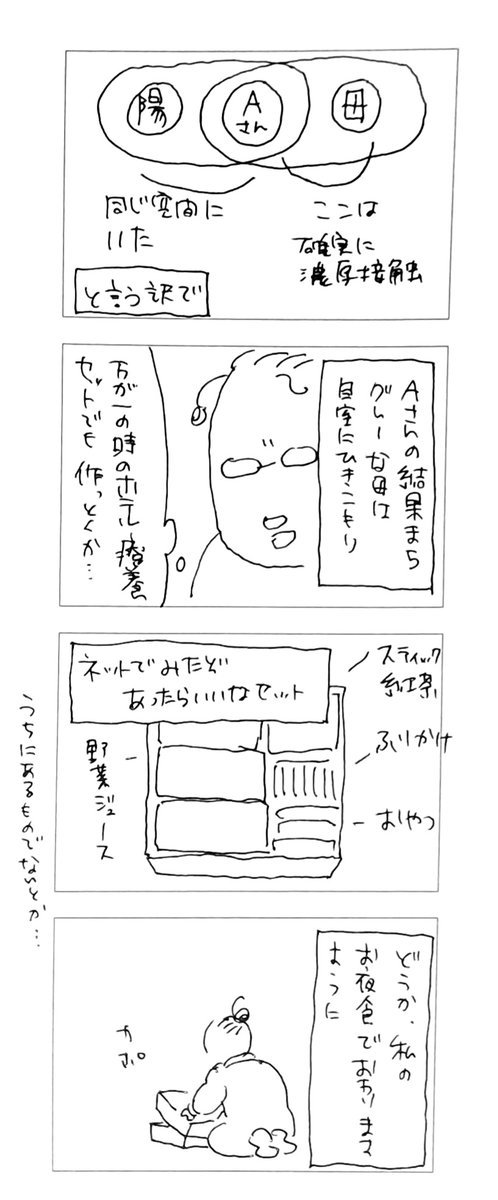 陽
Aさん
母
同じ空間に
いた
ここは
確実に
濃厚接触
と言う訳で
Aさんの結果まち
グレーな母は
自室にひきこもり
万が一の時のホテル療養
セットでも作っとくか…
ネットでみたぞ
あったらいいなセット
スティック
紅茶
ふりかけ
おやつ
野菜ジュース
うちにあるものでないとか…
どうか、私の
お夜食でおわります
ように
カポ